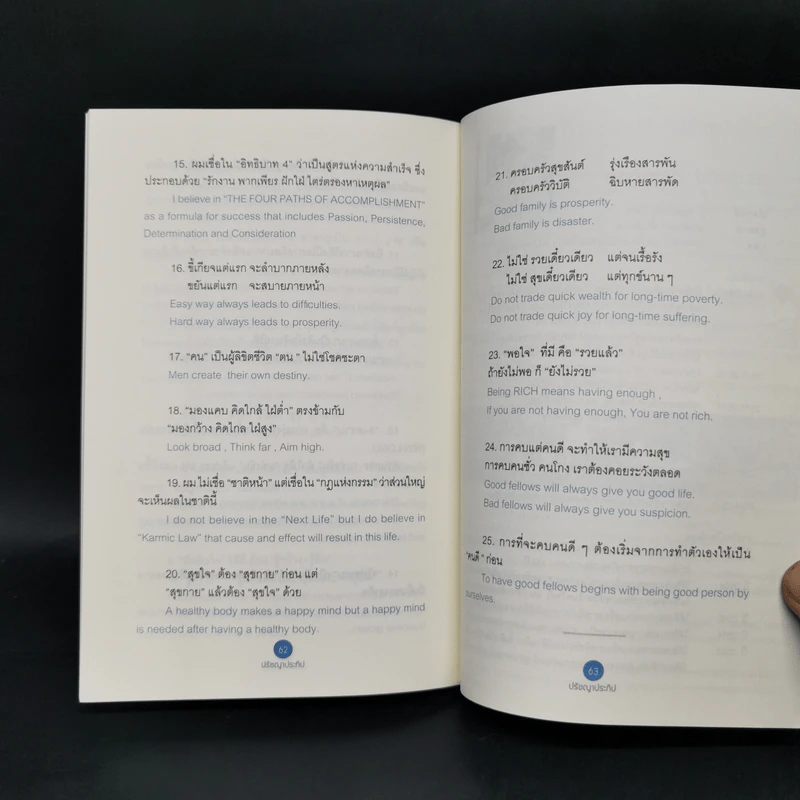 15. ผมเชื่อใน "อิทธิบาท 4" ว่าเป็นสูตรแห่งความสำเร็จ ซึ่ง
ประกอบด้วย "รักงาน พากเพียร ฝักใฝ่ ไตร่ตรองหาเหตุผล"
I believe in "THE FOUR PATHS OF ACCOMPLISHMENT"
as a formula for success that includes Passion, Persistence,
Determination and Consideration
16. ขี้เกียจแต่แรก จะลำบากภายหลัง
ขยันแต่แรก จะสบายภายหน้า
Easy way always leads to difficulties.
Hard way always leads to prosperity.
17. "คน" เป็นผู้ลิขิตชีวิต "ตน" ไม่ใช่โชคชะตา
Men create their own destiny.
18. "มองแคบ คิดใกล้ ใฝ่ต่ำ" ตรงข้ามกับ
"มองกว้าง คิดไกล ใฝ่สูง"
Look broad , Think far , Aim high.
19. ผม ไม่เชื่อ "ชาติหน้า" แต่เชื่อใน "กฎแห่งกรรม" ว่าส่วนใหญ่
จะเห็นผลในชาตินี้
I do not believe in the "Next Life" but I do believe in
"Karmic Law" that cause and effect will result in this life.
20. "สุขใจ" ต้อง "สุขกาย" ก่อน แต่
"สุขกาย" แล้วต้อง "สุขใจ" ด้วย
A healthy body makes a happy mind but a happy mind
is needed after having a healthy body.
62
ปรัชญาประทีป
21. ครอบครัวสุขสันต์ รุ่งเรืองสารพัน
ครอบครัววิบัติ ฉิบหายสารพัด
Good family is prosperity.
Bad family is disaster.
22. ไม่ใช่ รวยเดี๋ยวเดียว แต่จนเรื้อรัง
ไม่ใช่ สุขเดี๋ยวเดียว แต่ทุกข์นาน ๆ
Do not trade quick wealth for long-time poverty.
Do not trade quick joy for long-time suffering.
23. "พอใจ" ที่มี คือ "รวยแล้ว"
ถ้ายังไม่พอ ก็ "ยังไม่รวย"
Being RICH means having enough ,
If you are not having enough, You are not rich.
24. การคบแต่คนดี จะทำให้เรามีความสุข
การคบคนชั่ว คนโกง เราต้องคอยระวังตลอด
Good fellows will always give you good life.
Bad fellows will always give you suspicion.
25. การที่จะคบคนดี ๆ ต้องเริ่มจากการทำตัวเองให้เป็น
"คนดี" ก่อน
To have good fellows begins with being good person by
ourselves.
63
ปรัชญาประทีป